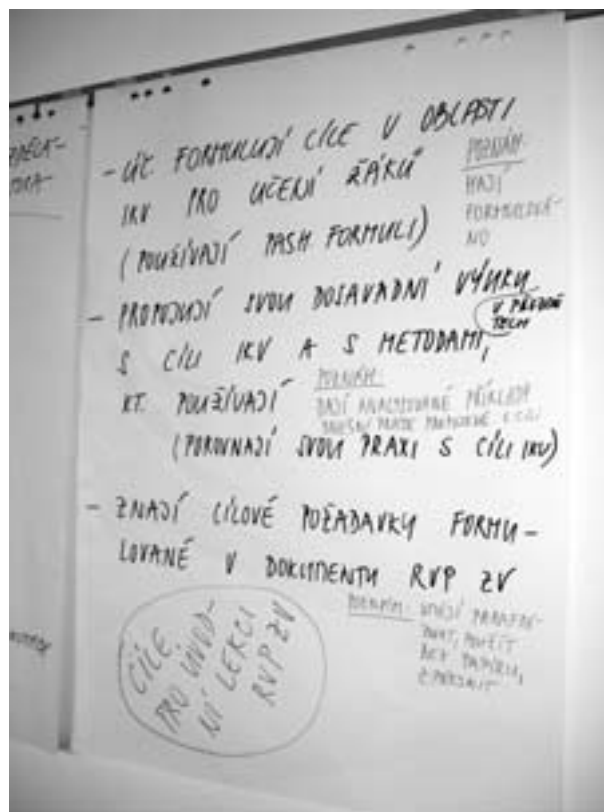 - ÚČ. FORMULUJÍ CÍLE V OBLASTI
IKV PRO UČENÍ ŽÁKŮ
(POUŽÍVAJÍ FORMULI)
POZNÁM:
MAJÍ
FORMULOVÁ-
NO
- PROPOJUJÍ SVOU DOSAVADNÍ VÝUKU
V PŘEDMĚ
TECH
S CÍLI IKV A S METODAMI,
KT. POUŽÍVAJÍ
POZNÁM:
PŘÍKLADY
(POROVNAJÍ SVOU PRAXI S CÍLI IKV)
- ZNAJÍ CÍLOVÉ POŽADAVKY FORMU-
LOVANÉ V DOKUMENTU RVP ZV
POZNÁM: UMĚJÍ PARAFRÁ-
ZOVAT, POUŽÍT
BEZ PAPÍRU,
CÍLE
PRO ÚVOD-
NÍ LEKCI
RVP ZV